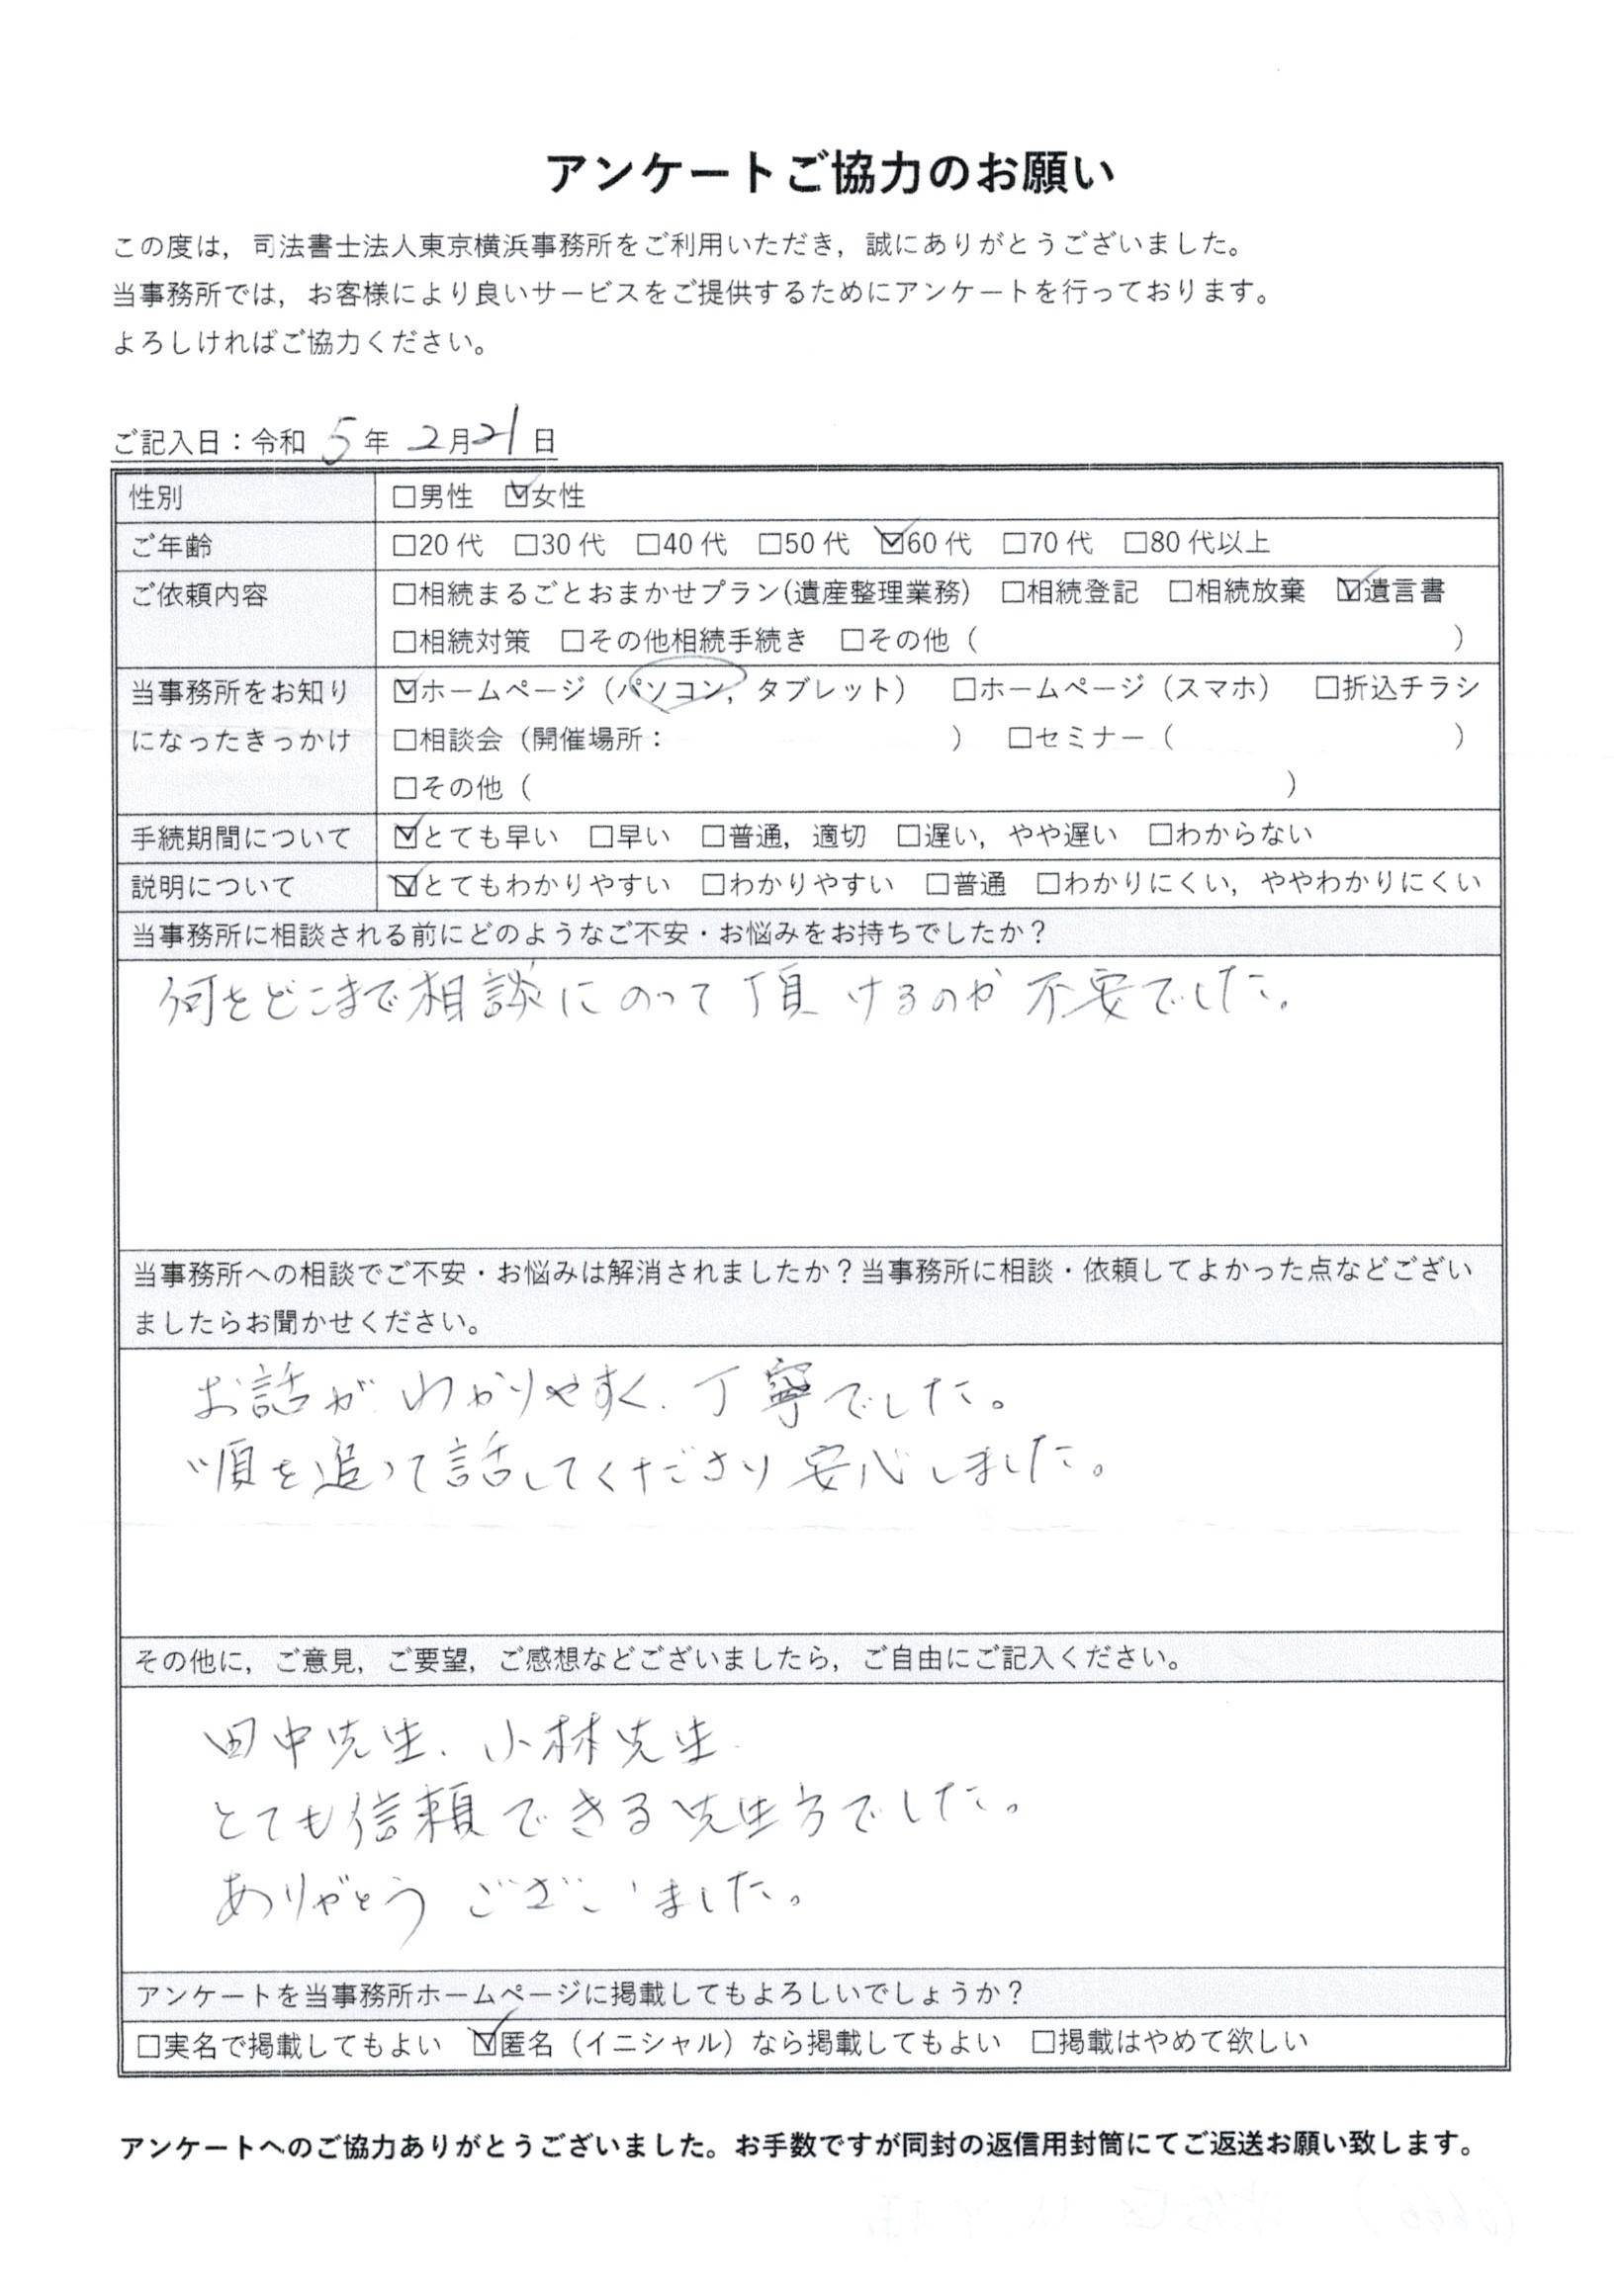 アンケートご協力のお願い
この度は，司法書士法人東京横浜事務所をご利用いただき，誠にありがとうございました。
当事務所では，お客様により良いサービスをご提供するためにアンケートを行っております。
よろしければご協力ください。
ご記入日：令和 5年 2月21日
性別 □男性 ☑女性
ご年齢 □20代 □30代 □40代 □50代 ☑60代 □70代 □80代以上
ご依頼内容 □相続まるごとおまかせプラン(遺産整理業務) □相続登記 □相続放棄 ☑遺言書
□相続対策 □その他相続手続き □その他（ ）
当事務所をお知り ☑ホームページ（パソコン，タブレット） □ホームページ（スマホ） □折込チラシ
になったきっかけ □相談会（開催場所： ） □セミナー（ ）
□その他（ ）
手続期間について ☑とても早い □早い □普通，適切 □遅い，やや遅い □わからない
説明について ☑とてもわかりやすい □わかりやすい □普通 □わかりにくい，ややわかりにくい
当事務所に相談される前にどのようなご不安・お悩みをお持ちでしたか？
何をどこまで相談にのって頂けるのか不安でした。
当事務所への相談でご不安・お悩みは解消されましたか？当事務所に相談・依頼してよかった点などござい
ましたらお聞かせください。
お話がわかりやすく、丁寧でした。
順を追って話してくださり安心しました。
その他に，ご意見，ご要望，ご感想などございましたら，ご自由にご記入ください。
田中先生、小林先生
とても信頼できる先生方でした。
ありがとうございました。
アンケートを当事務所ホームページに掲載してもよろしいでしょうか？
□実名で掲載してもよい ☑匿名（イニシャル）なら掲載してもよい □掲載はやめて欲しい
アンケートへのご協力ありがとうございました。お手数ですが同封の返信用封筒にてご返送お願い致します。